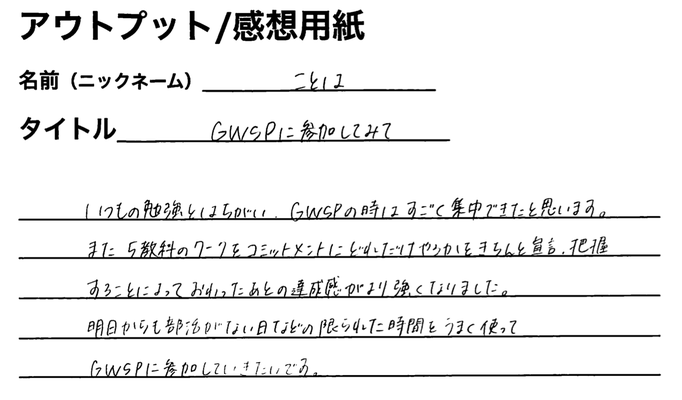 アウトプット/感想用紙
名前（ニックネーム） ことは
タイトル GWSPに参加してみて
いつもの勉強とはちがい、GWSPの時はすごく集中できたと思います。
また5教科のワークをコミットメントにどれだけやるかをきちんと宣言、把握
することによっておわったあとの達成感がより強くなりました。
明日からも部活がない日などの限られた時間をうまく使って
GWSPに参加していきたいです。